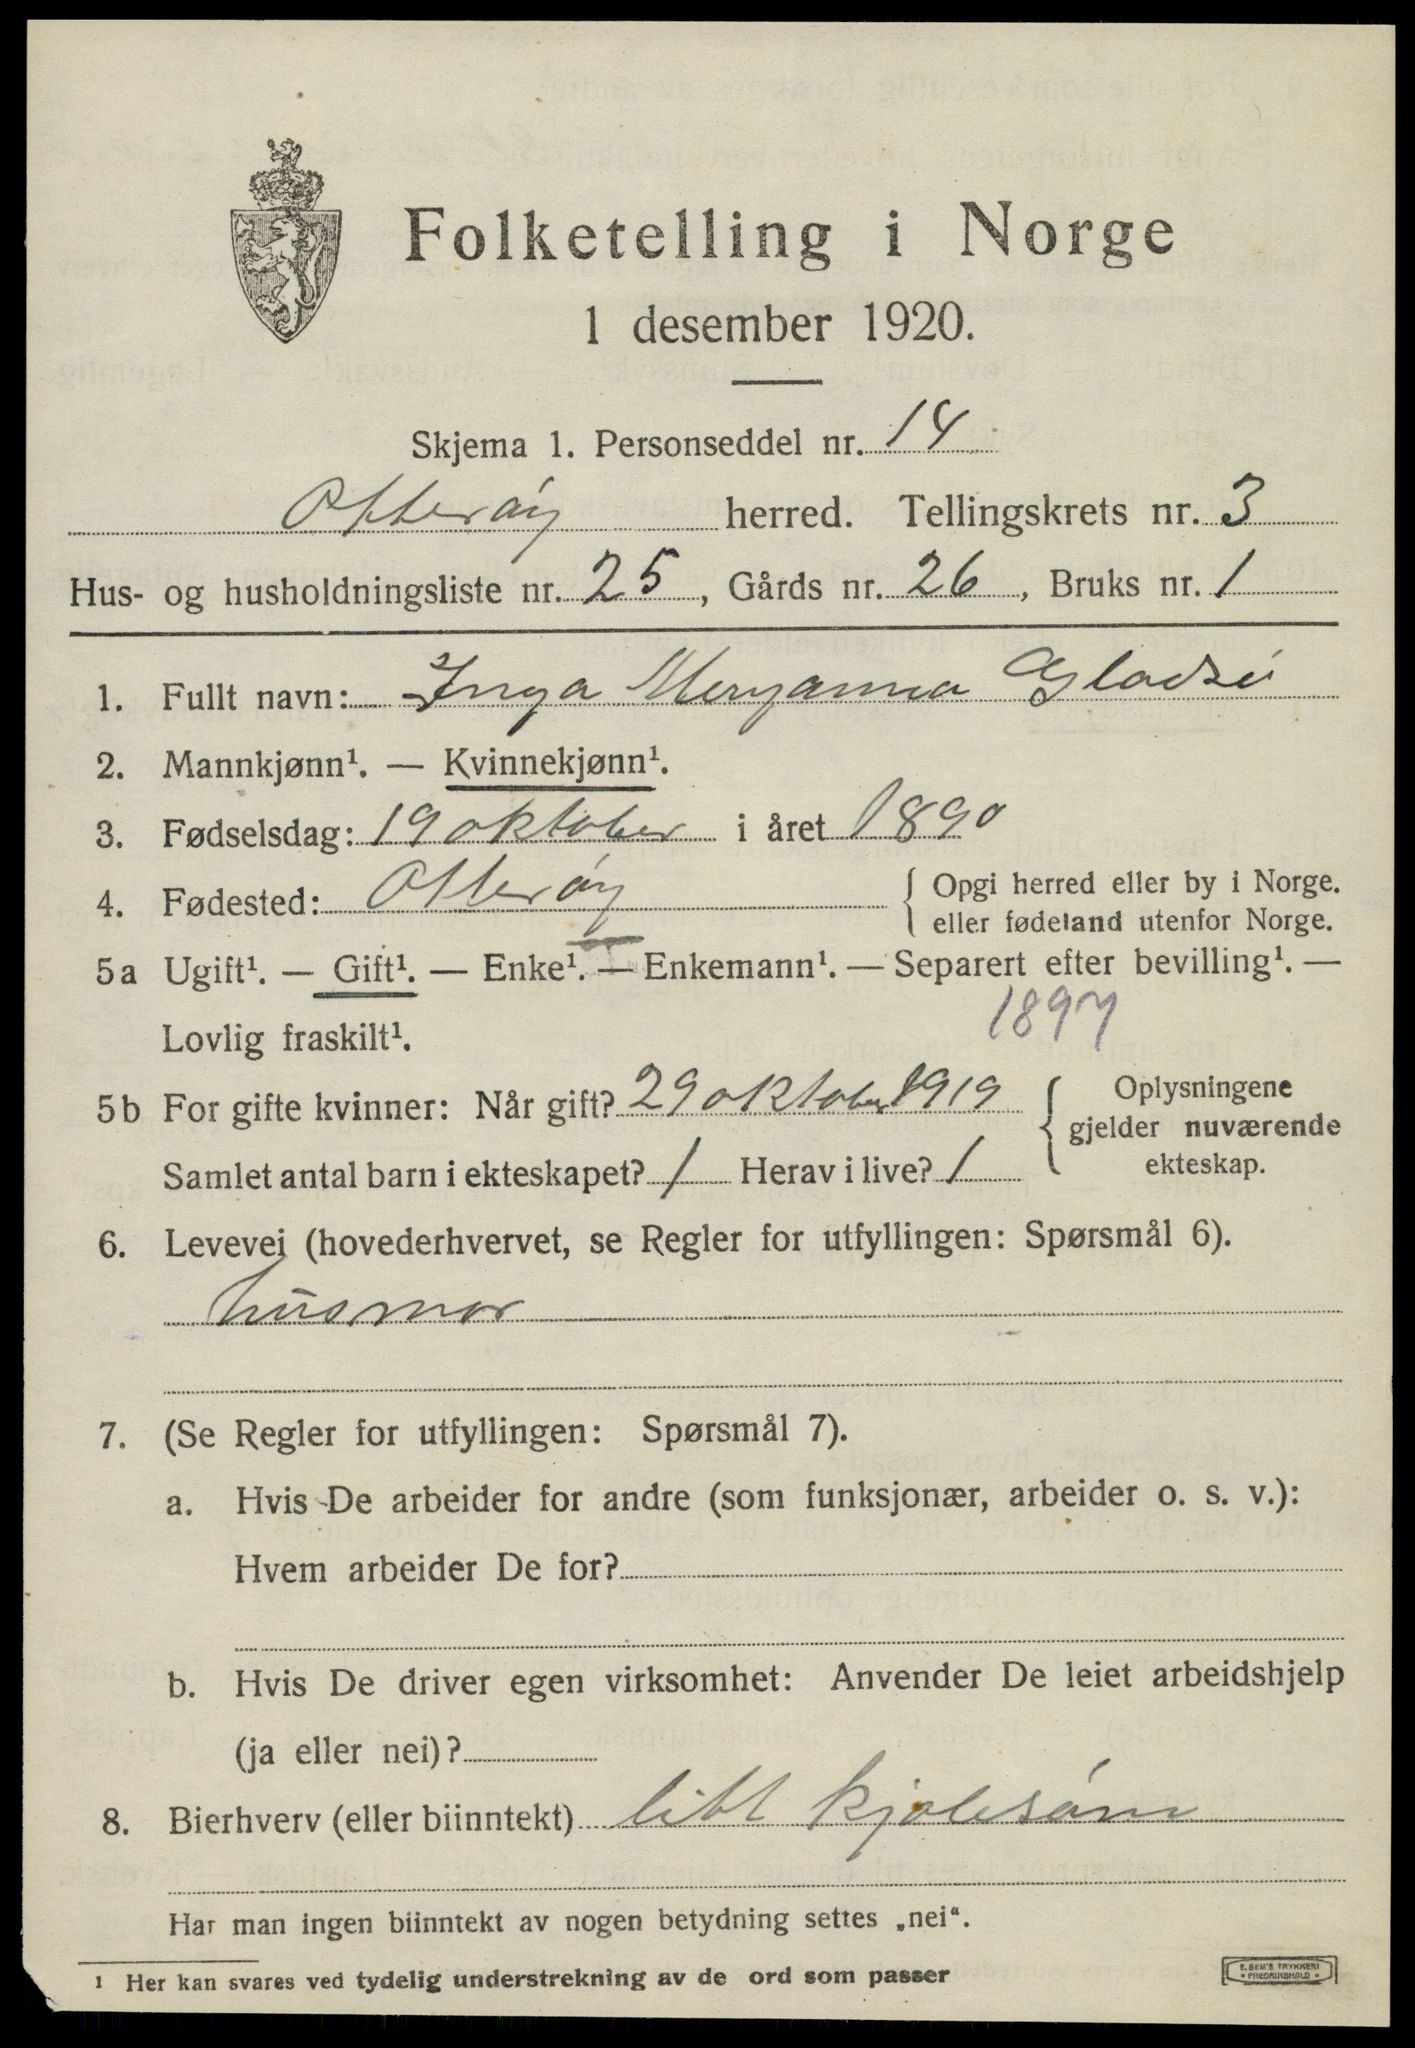 Folketelling i Norge
1 desember 1920.
Skjema 1. Personseddel nr. 14
Otterøy herred. Tellingskrets nr. 3
Hus- og husholdningsliste nr. 25, Gårds nr. 26, Bruks nr. 1
1. Fullt navn: Inga Meryanna Gladsø
2. Mannkjønn¹. — Kvinnekjønn¹.
3. Fødselsdag: 19 oktober i året 1890
4. Fødested: Otterøy { Opgi herred eller by i Norge.
eller fødeland utenfor Norge.
5a Ugift¹. — Gift¹. — Enke¹. — Enkemann¹. — Separert efter bevilling¹. —
Lovlig fraskilt¹. 1897
5b For gifte kvinner: Når gift? 29 oktober 1919 { Oplysningene
gjelder nuværende
ekteskap.
Samlet antal barn i ekteskapet? 1 Herav i live? 1
6. Levevei (hovederhvervet, se Regler for utfyllingen: Spørsmål 6).
husmor
7. (Se Regler for utfyllingen: Spørsmål 7).
a. Hvis De arbeider for andre (som funksjonær, arbeider o. s. v.):
Hvem arbeider De for?
b. Hvis De driver egen virksomhet: Anvender De leiet arbeidshjelp
(ja eller nei)?
8. Bierhverv (eller biinntekt) litt kjolesøm
Har man ingen biinntekt av nogen betydning settes „nei“.
¹ Her kan svares ved tydelig understrekning av de ord som passer
E. SEM'S TRYKKERI
FREDRIKSHALD